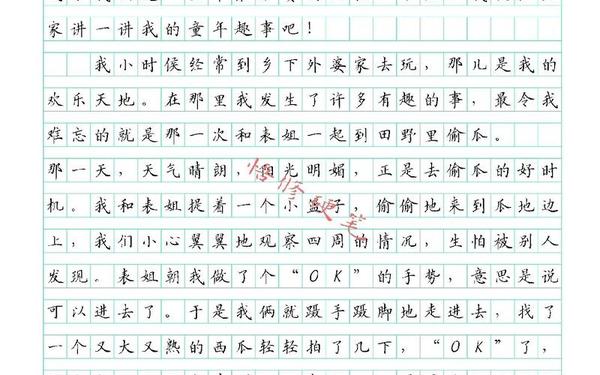 家讲一讲我的童年趣事吧！
我小时侯经常到乡下外婆家去玩，那儿是我的
欢乐天地。在那里我发生了许多有趣的事，最令我
难忘的就是那一次和表姐一起到田野里偷瓜。
那一天，天气晴朗，阳光明媚，正是去偷瓜的好时
机。我和表姐提着一个小篮子，偷偷地来到瓜地边
上，我们小心翼翼地观察四周的情况，生怕被别人
发现。表姐朝我做了个“OK”的手势，意思是说
可以进去了。于是我俩就蹑手蹑脚地走进去，找了
一个又大又熟的西瓜轻轻拍了几下，“OK”了，
悟修硬笔